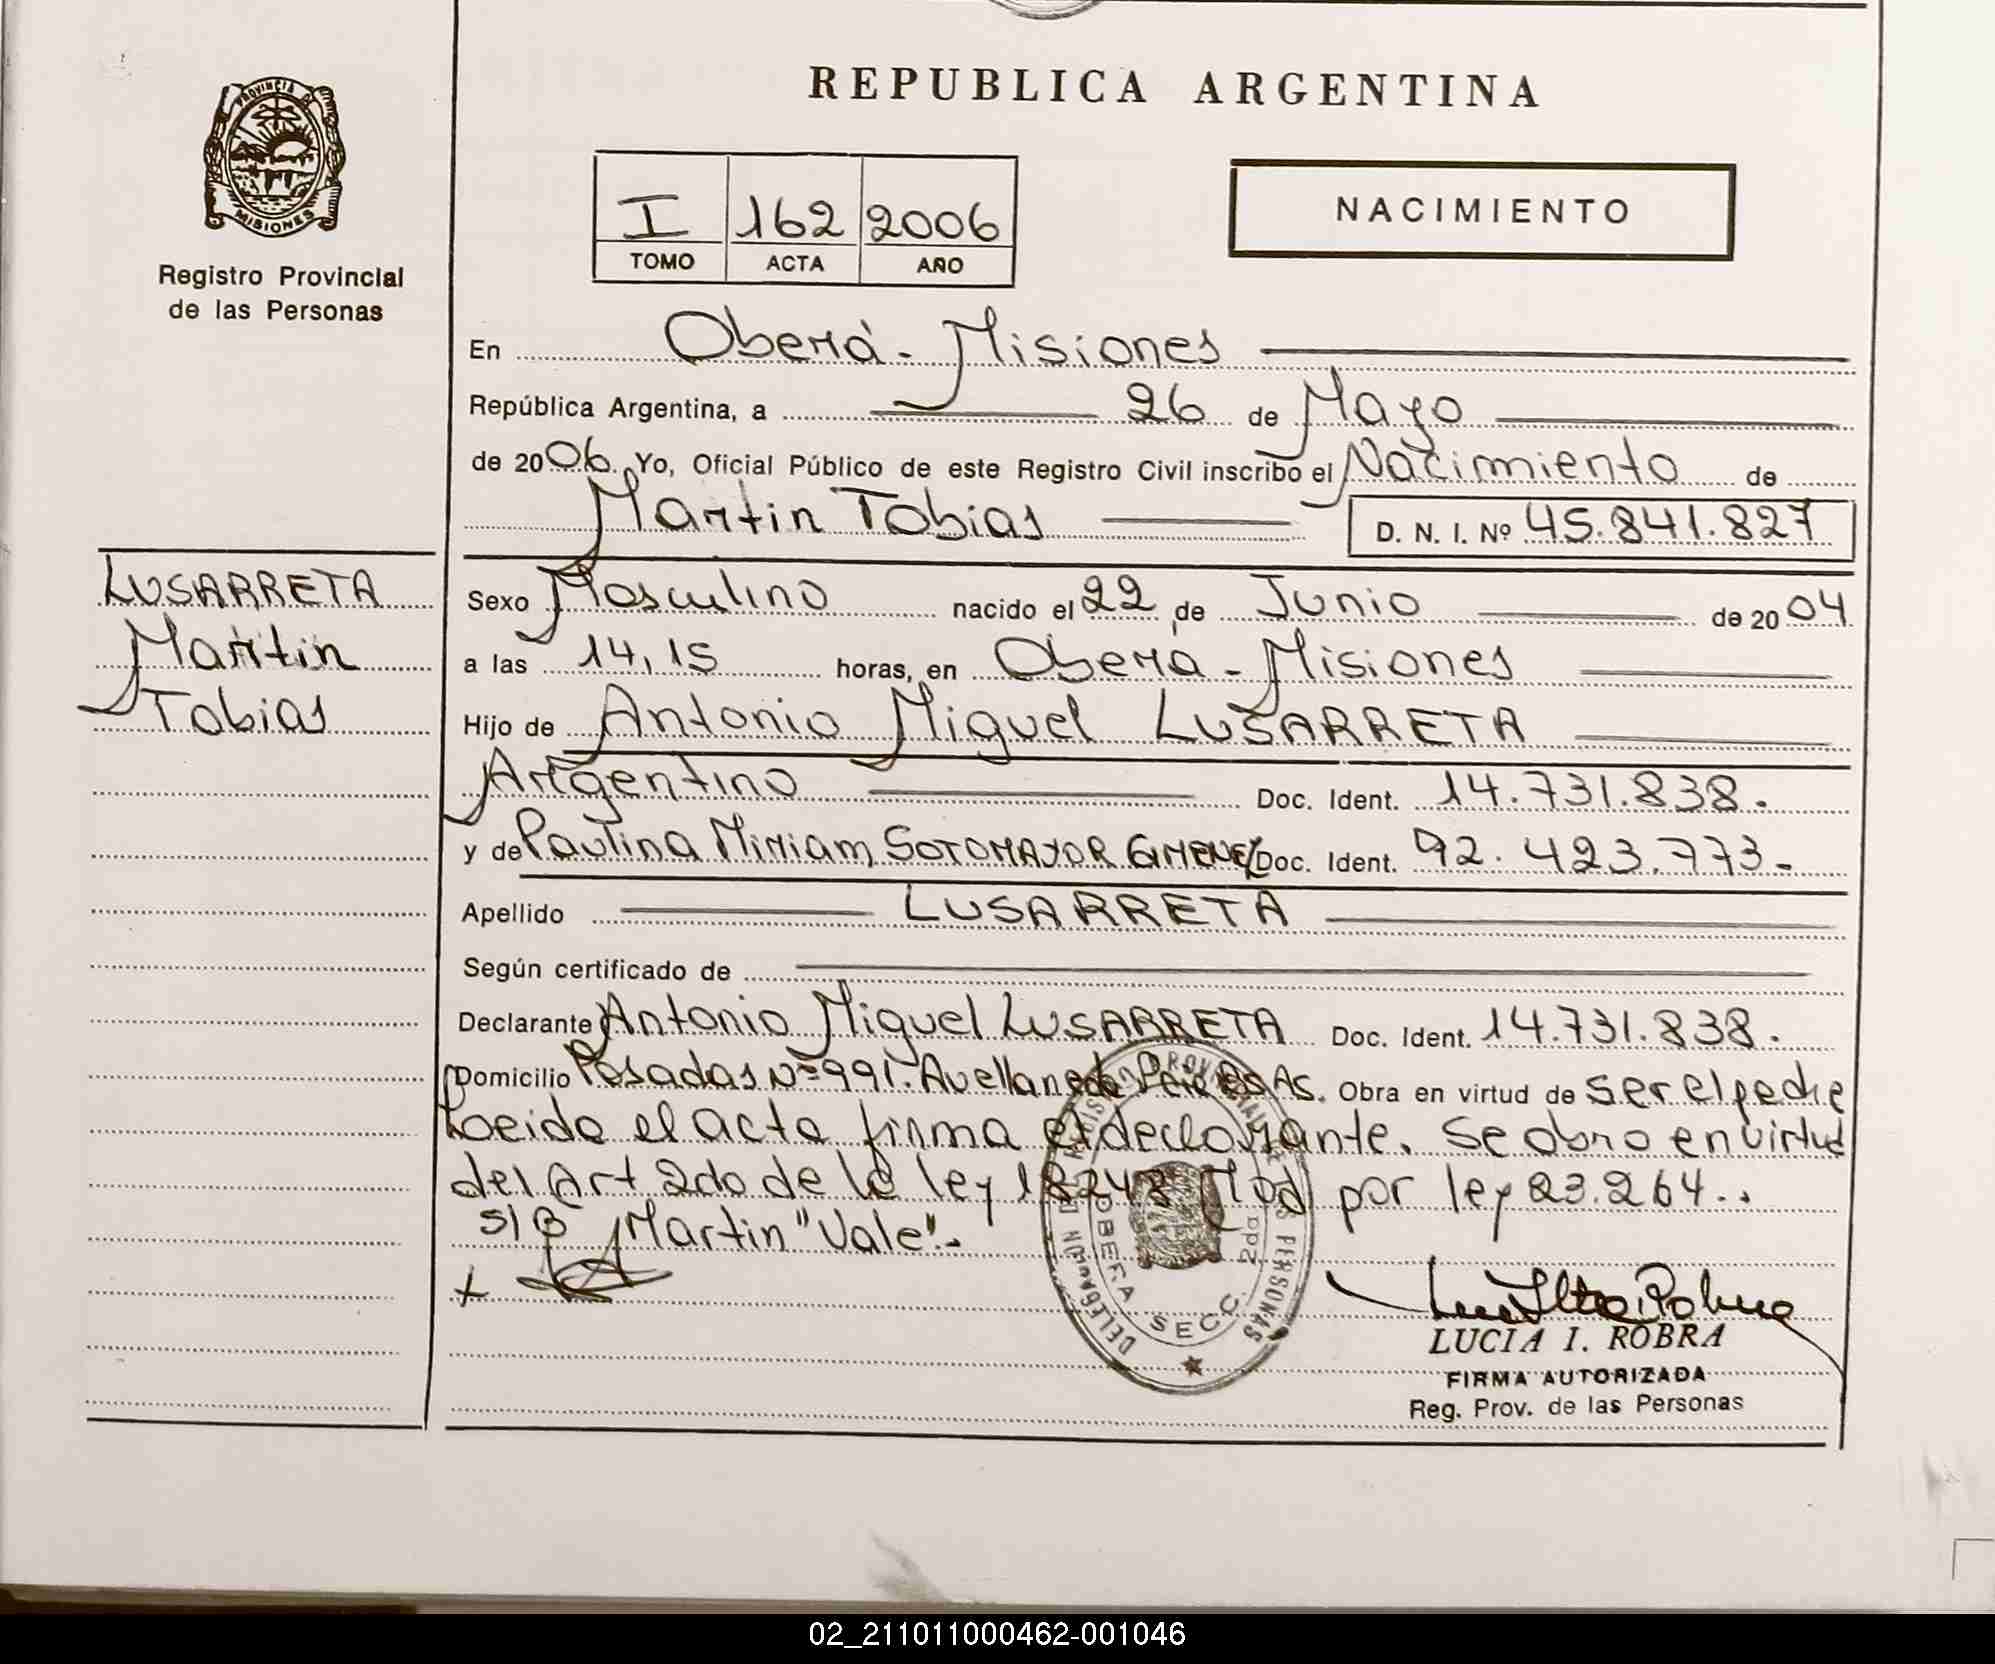 REPUBLICA ARGENTINA
PROVINCIA D
MISIONES
Registro Provincial
de las Personas
I 162 2006
TOMO ACTA AÑO
NACIMIENTO
En Oberá - Misiones
República Argentina, a 26 de Mayo
de 2006. Yo, Oficial Público de este Registro Civil inscribo el Nacimiento de
Martin Tobias D. N. I. Nº 45.841.827
LUSARRETA
Martin
Tobias
Sexo Masculino nacido el 22 de Junio de 2004
a las 14,15 horas, en Oberá - Misiones
Hijo de Antonio Miguel LUSARRETA
Argentino Doc. Ident. 14.731.838.
y de Paulina Miriam SOTOMAYOR GIMENEZ Doc. Ident. 92.423.773-
Apellido LUSARRETA
Según certificado de
Declarante Antonio Miguel LUSARRETA Doc. Ident. 14.731.838.
Domicilio Posadas Nº 991. Avellaneda Bs As. Obra en virtud de ser el padre
Leida el acta firma el declarante. Se obro en virtud
del Art 2do de la ley 18248 Mod por ley 23.264..
S/B Martin "Vale".-
DELEGACION OBERA SECC. 2da
LUCIA I. ROBRA
FIRMA AUTORIZADA
Reg. Prov. de las Personas
02_211011000462-001046